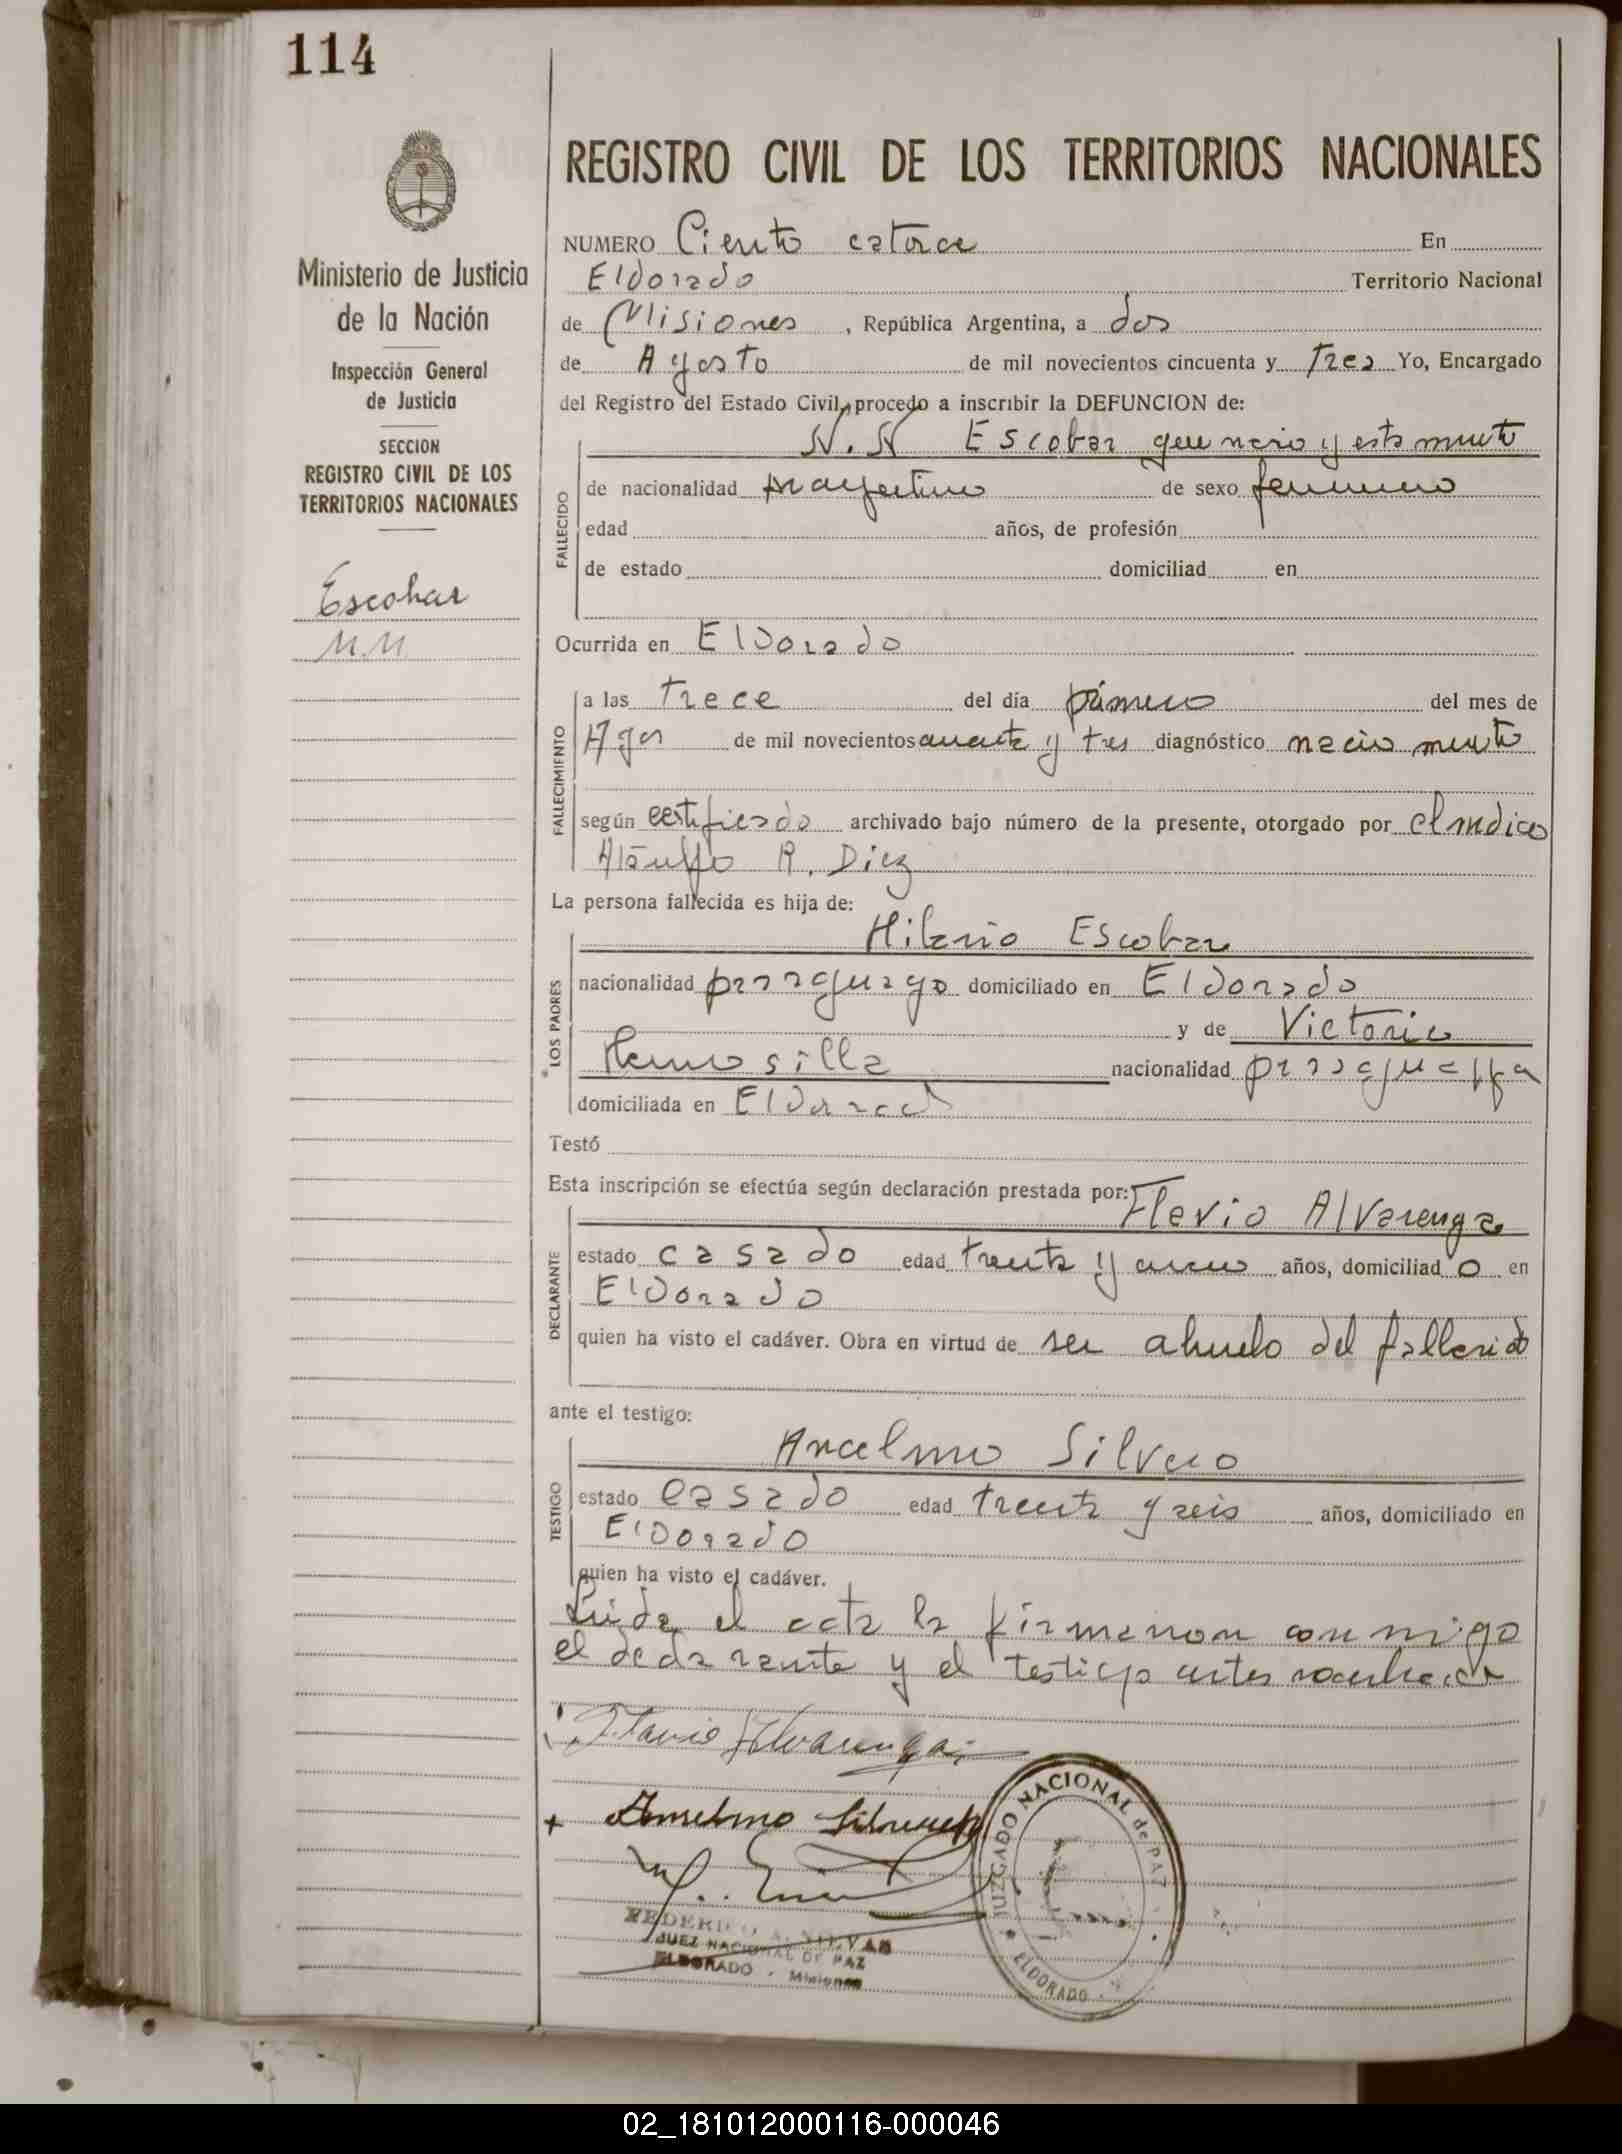 114
REGISTRO CIVIL DE LOS TERRITORIOS NACIONALES
Ministerio de Justicia
de la Nación
Inspección General
de Justicia
SECCION
REGISTRO CIVIL DE LOS
TERRITORIOS NACIONALES
Escobar
N.N.
NUMERO Ciento catorce En
Eldorado Territorio Nacional
de Misiones, República Argentina, a dos
de Agosto de mil novecientos cincuenta y Tres Yo, Encargado
del Registro del Estado Civil, procedo a inscribir la DEFUNCION de:
N.N Escobar que nacio y esta muerto
FALLECIDO
de nacionalidad argentino de sexo femenino
edad años, de profesión
de estado domiciliad en
Ocurrida en Eldorado
FALLECIMIENTO
a las Trece del día primero del mes de
Agos de mil novecientos y tres diagnóstico nacio muerto
según certificado archivado bajo número de la presente, otorgado por el medico
Ataulfo R. Diez
La persona fallecida es hija de:
LOS PADRES
Hilario Escobar
nacionalidad paraguayo domiciliado en Eldorado
y de Victoria
Hermosilla nacionalidad paraguaya
domiciliada en Eldorado
Testó
Esta inscripción se efectúa según declaración prestada por:
Flavio Alvarenga
DECLARANTE
estado casado edad treinta y años, domiciliado en
Eldorado
quien ha visto el cadáver. Obra en virtud de ser abuelo del fallecido
ante el testigo:
TESTIGO
Ancelmo Silvero
estado casado edad treinta y seis años, domiciliado en
Eldorado
quien ha visto el cadáver.
Leida el acta la firmaron conmigo
el declarante y el testigo antes
Flavio Alvarenga
+ Anselmo
FEDERICO A.
JUEZ NACIONAL DE PAZ
ELDORADO - Misiones
JUZGADO NACIONAL de PAZ
ELDORADO
02_181012000116-000046